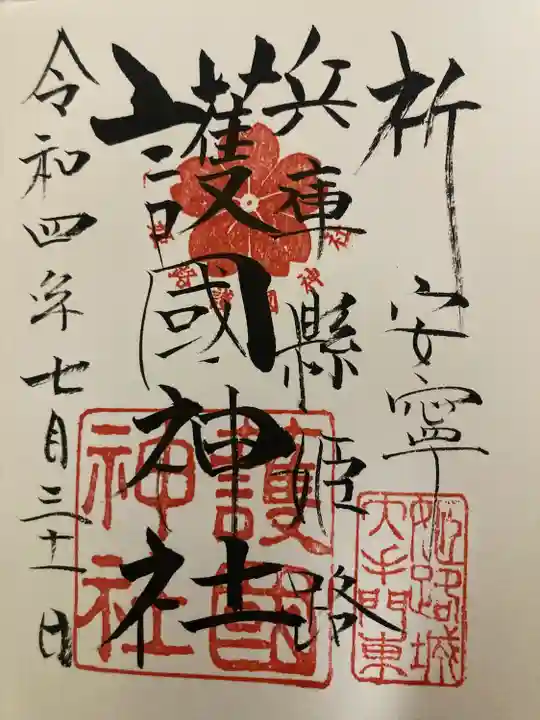 祈安寧
兵庫縣姫路
護國神社
令和四年七月三十一日
姫路城
大手門東
護國
神社